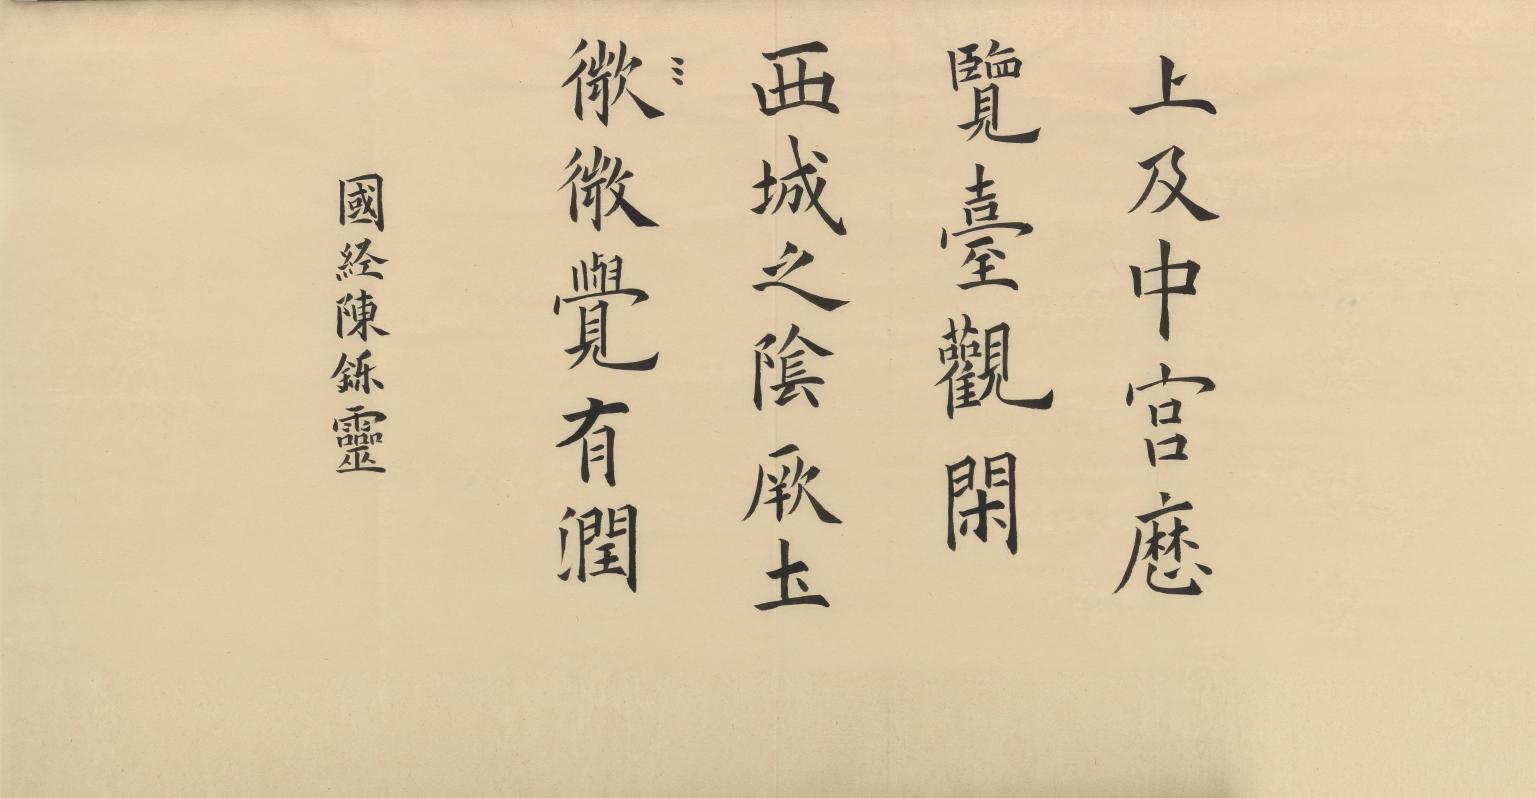 上及中宮歷
覽臺觀閑
西城之陰厥土
微微覺有潤
國経陳鑠靈